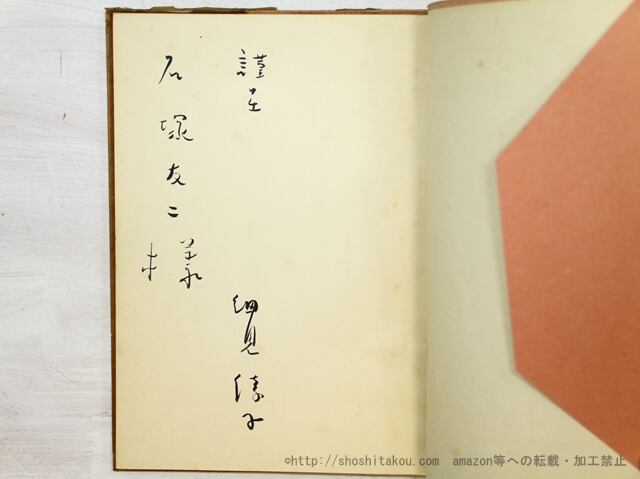 謹呈
細見綾子
石塚友二
様
©http://shoshitakou.com amazon等への転載・加工禁止